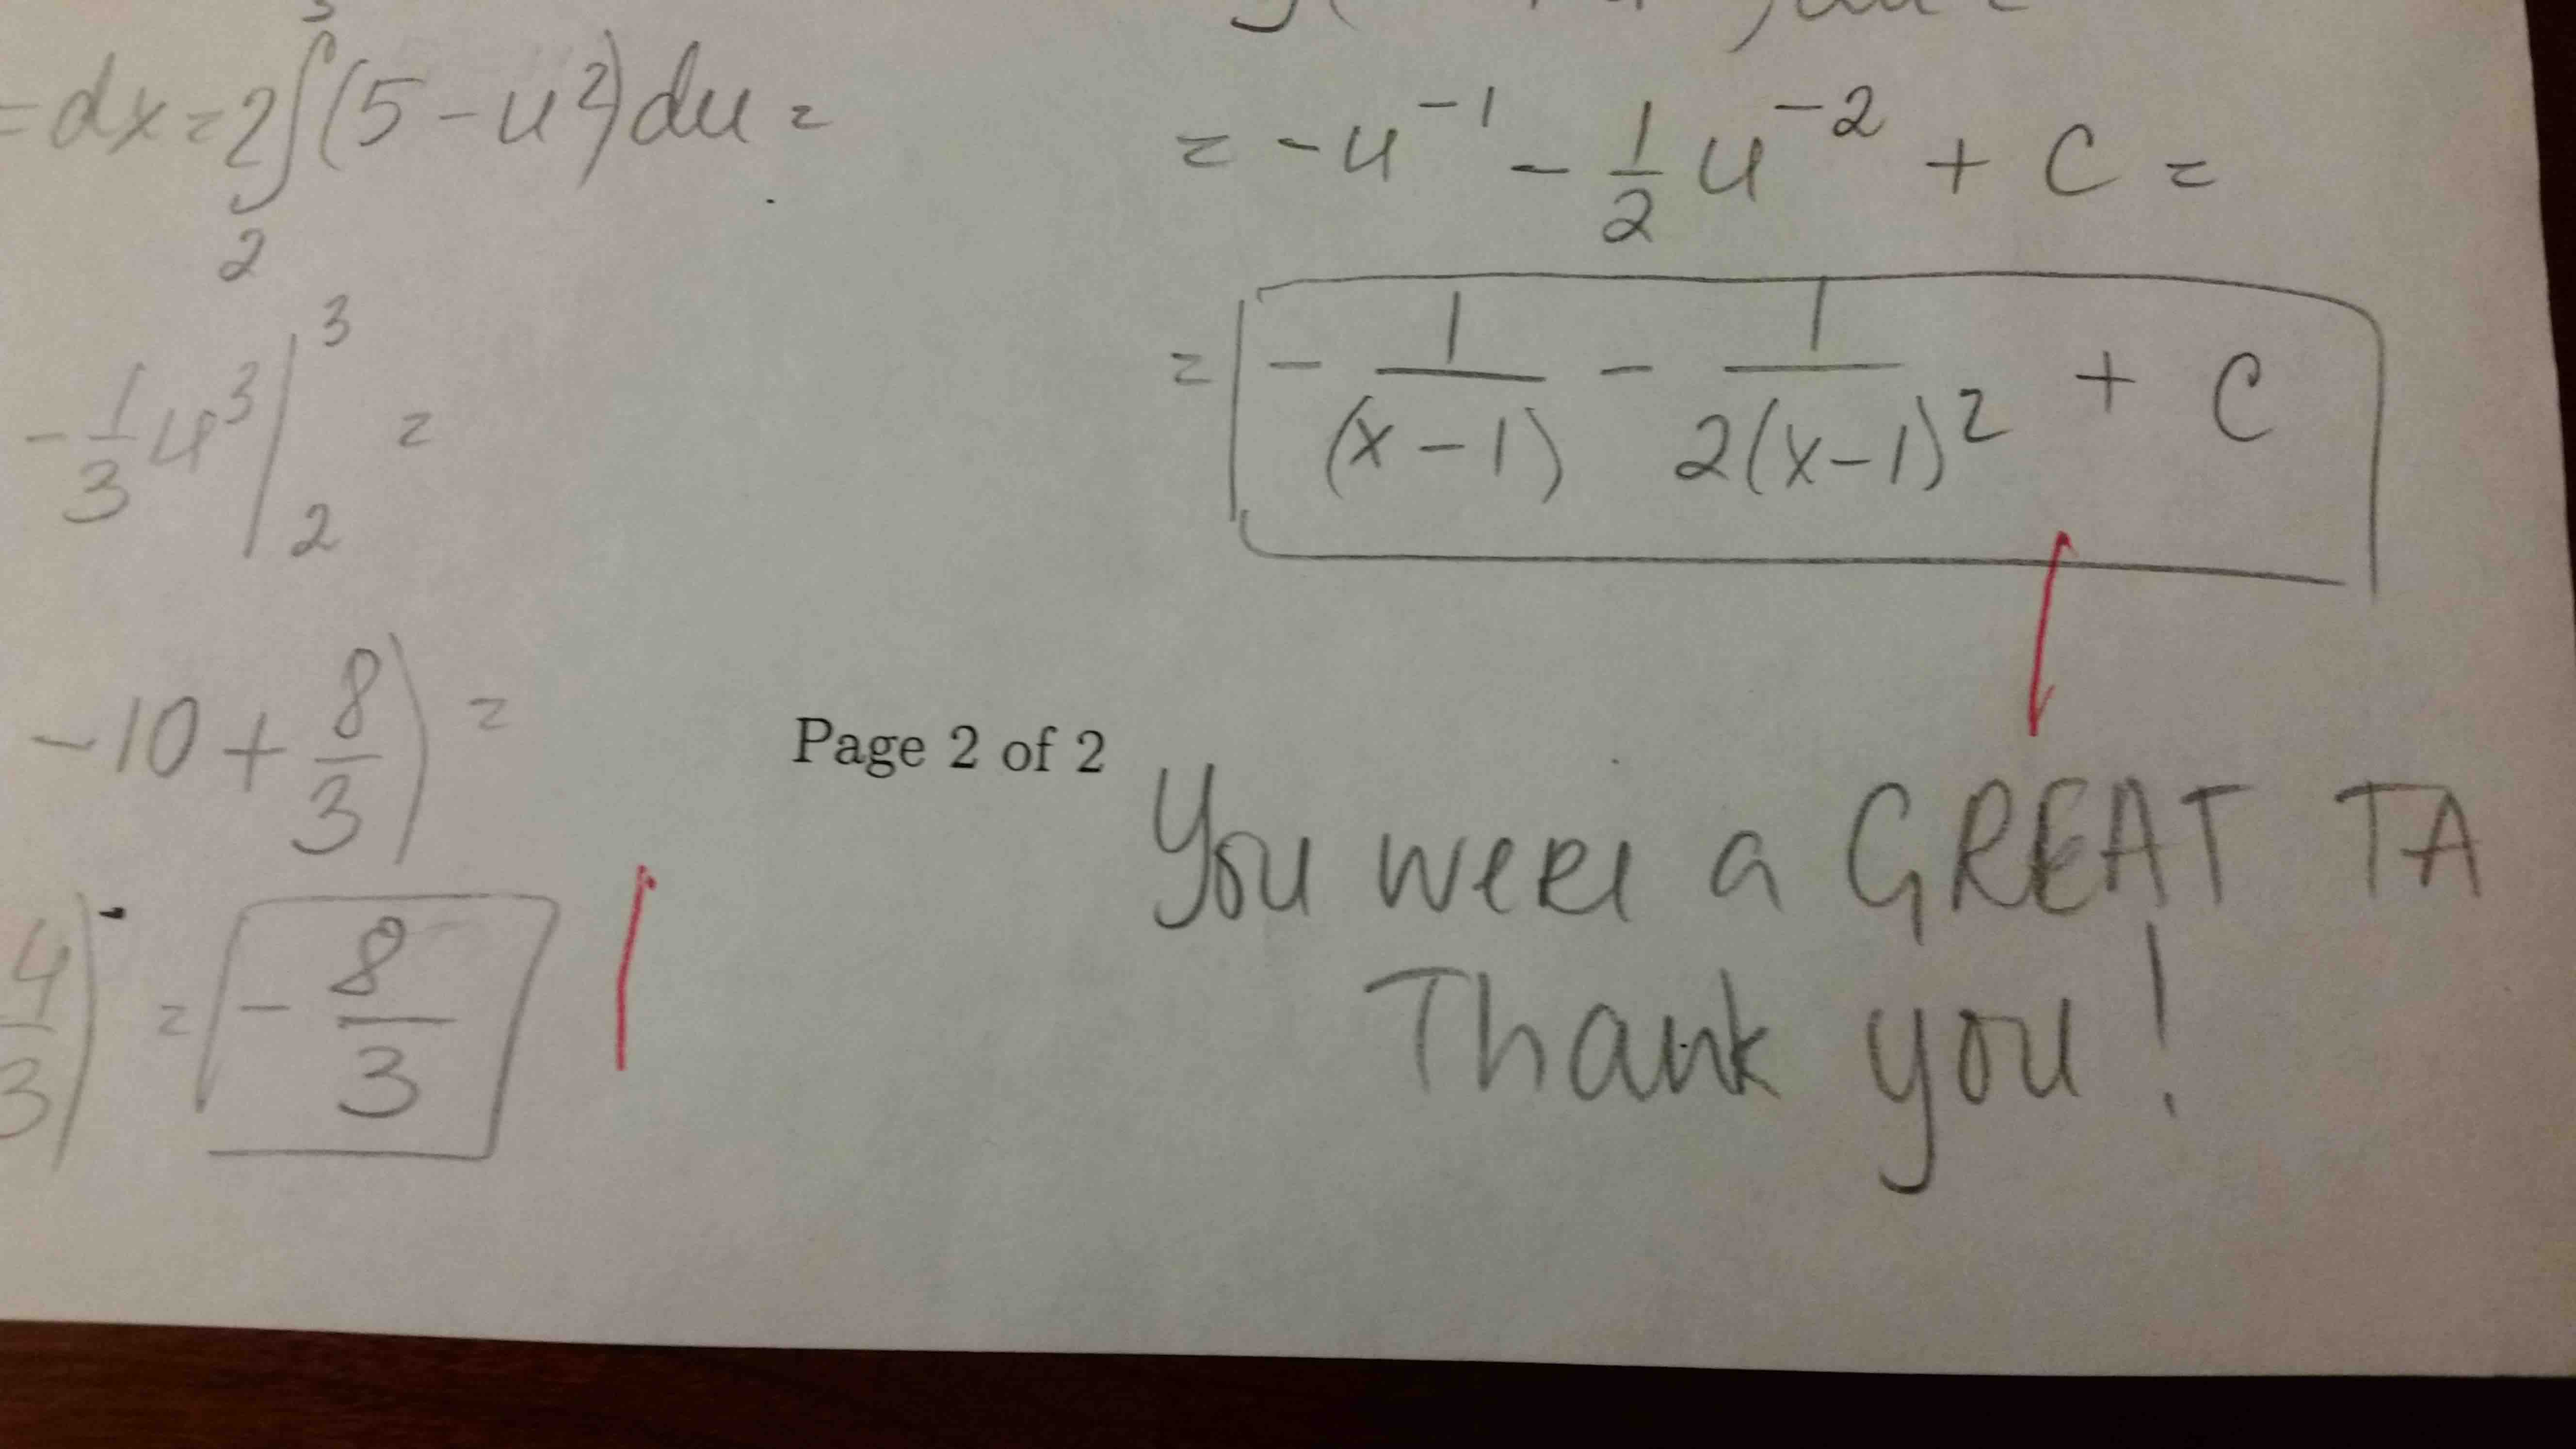 = dx = 2∫(5 - u²)du =
2
- 1/3 u³ |₂³ =
- 10 + 8/3) =
4/3) = - 8/3
= - u⁻¹ - 1/2 u⁻² + C =
= - 1/(x - 1) - 1/2(x - 1)² + C
Page 2 of 2
You were a GREAT TA
Thank you!